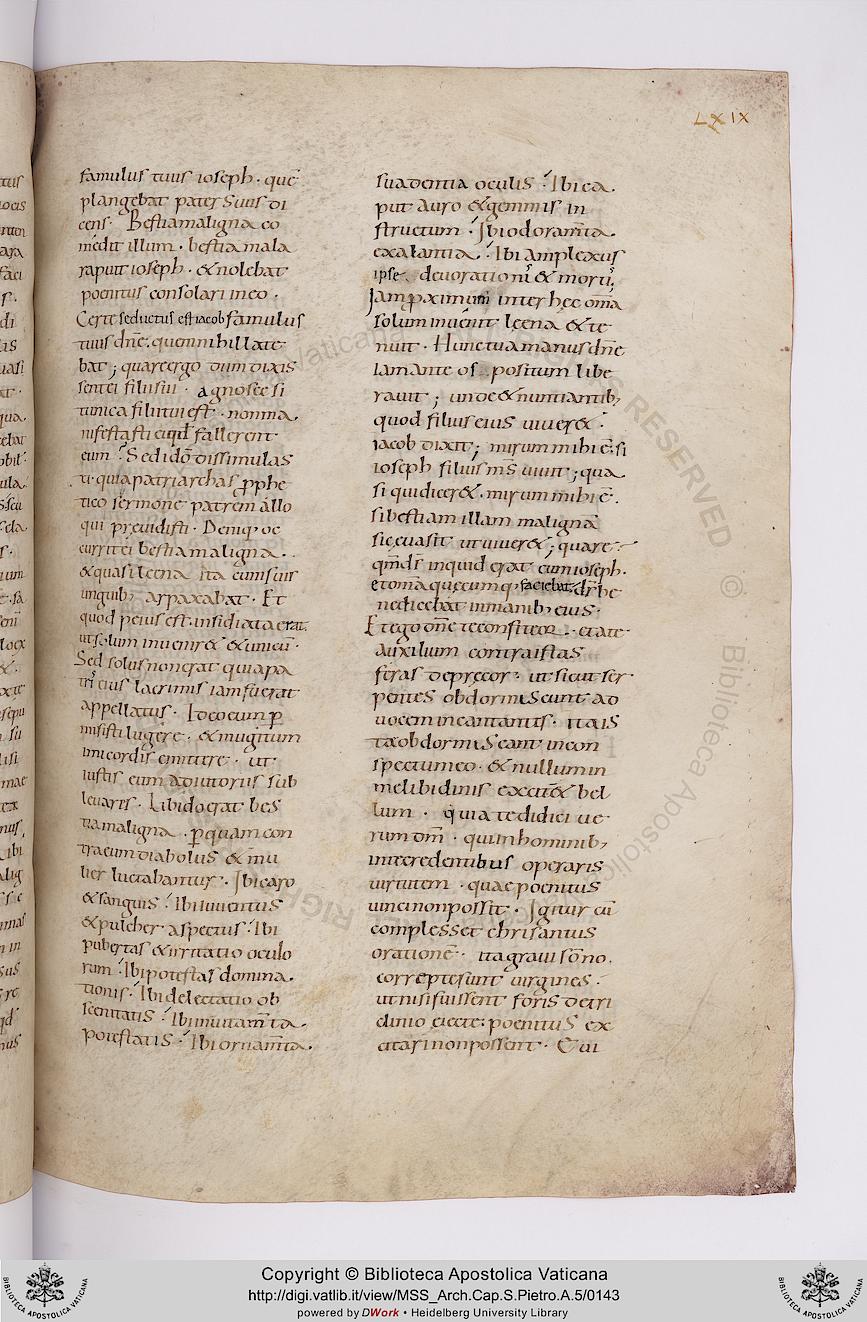 LXIX
famulus tuus ioseph · quē
plangebat pater suus di
cens · Bestia maligna co
medit illum · bestia mala
rapuit ioseph · & nolebat
poenitus consolari in eo ·
Certe seductus est iacob famulus
tuus dn̄e · quem nihil late
bat ; quare ergo dum dixis
sent ei filii sui · agnosce si
tunica filii tui est · non ma
nifestasti ei qd̄ fallerent
eum · Sed ideo dissimulas
ti · quia patriarchas p̱phe
tico sermone patrem allo
qui preuidisti · Deniq; oc
currit ei bestia maligna ·
& quasi leena ita eum suis
unguib; arpaxabat · Et
quod peius est · insidiata erat
ut solum inuenir& & unicū ·
Sed solus non erat quia pa
tris eius lacrimis iam fuerat
appellatus · Ideo eum p̱
misisti lugere · & mugitum
imi cordis emittere · ut
iustis eum adiutoriis sub
leuares · Libido erat bes
tia maligna · p̱ quam con
tra eum diabolus & mu
lier luctabantur · Ibi caro
& sanguis · Ibi iuuentus
& pulcher aspectus · Ibi
pubertas & irritatio oculo
rum · Ibi potestas domina
tionis · Ibi delectatio ob
scenitatis · Ibi inuitam̄ta
potestatis · Ibi ornam̄ta ·
suadentia oculis · Ibi ca
put auro & gemmis in
structum · Ibi odoram̄ta
exalantia · Ibi amplexus
ipse deuorationi & morti
Iam p̱ximum inter hec om̄a
solum inuenit leena & te
nuit · Hunc tua manus dn̄e
lam ante os positum libe
rauit ; unde & nuntiantib;
quod filius eius uiuer& ·
iacob dixit ; mirum mihi ē · si
ioseph filius ms̄ uiuit ; qua
si qui dicer& · mirum mihi ē ·
si bestiam illam malignā
sic euasit ut uiuer& ; quare
qm̄ dr̄ inquid erat cum ioseph ·
et om̄a quęcumq; faciebat dn̄s be
nedicebat in manib; eius ·
Et ego dn̄e te confiteor · et a te
auxilium contra istas
feras deprecor · ut sicut ser
pentes obdormiscunt ad
uocem incantantis · ita is
tę obdormiscant in con
spectu meo · & nullum in
me libidinis excit& bel
lum · quia te didici ue
rum dm̄ · qui in hominib;
in te credentibus operaris
uirtutem · quae poenitus
uinci non possit · Igitur cū
complesset chrisantus
orationē · ita graui sōno
correptę sunt uirgines ·
ut nisi fuissent foris de tri
clinio eiectę · poenitus ex
citari non possent · Cui
Copyright © Biblioteca Apostolica Vaticana
http://digi.vatlib.it/view/MSS_Arch.Cap.S.Pietro.A.5/0143
powered by DWork • Heidelberg University Library